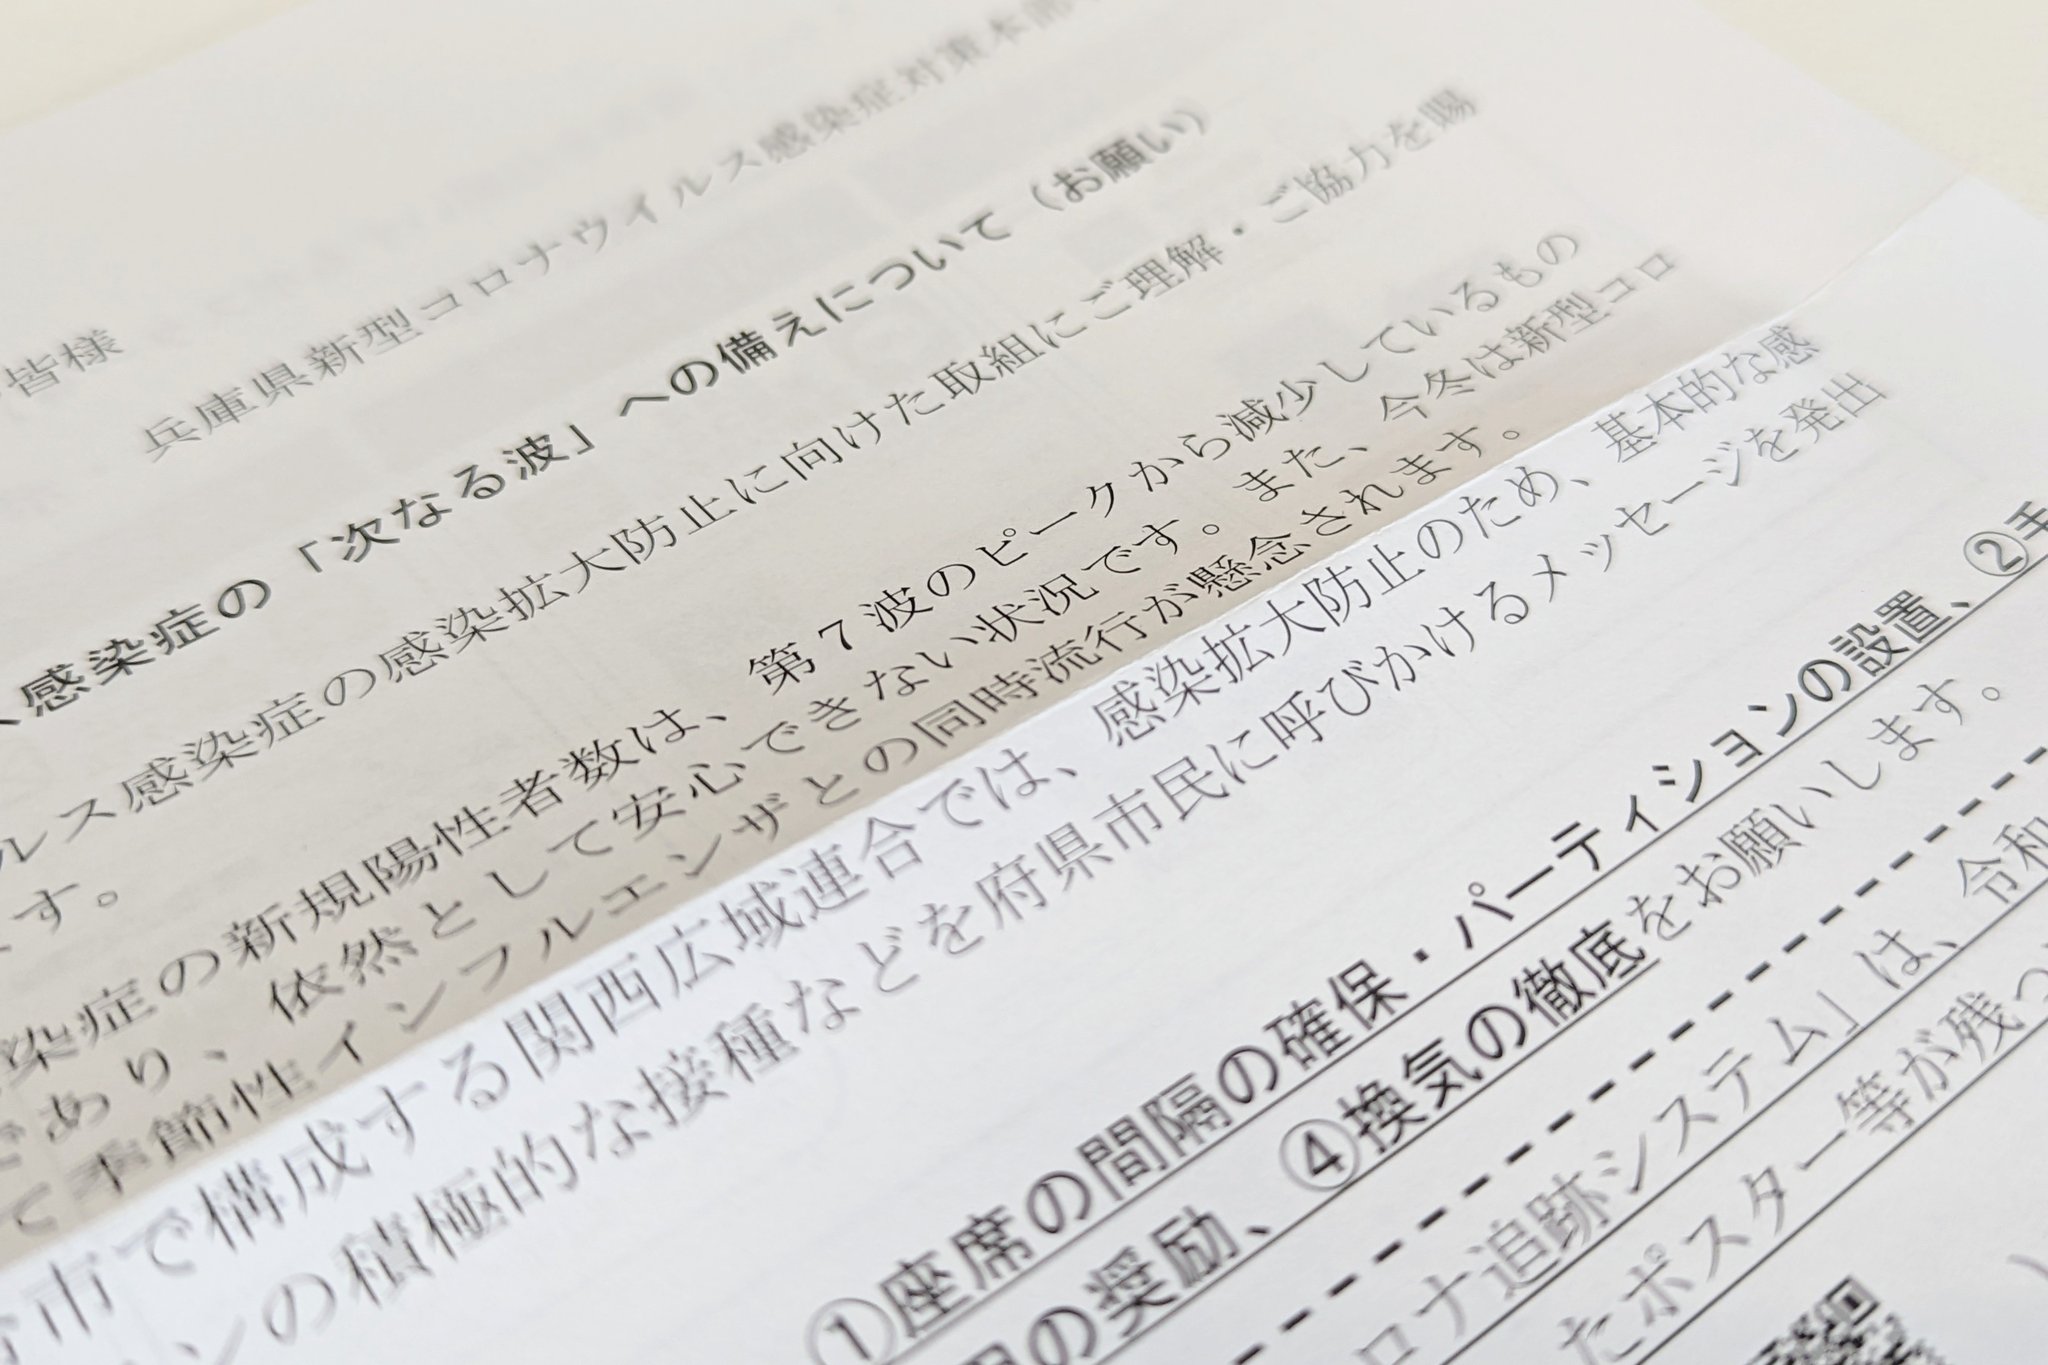 皆様
兵庫県新型コロナウイルス感染症対策本部
感染症の「次なる波」への備えについて（お願い）
ルス感染症の感染拡大防止に向けた取組にご理解・ご協力を賜
ます。
染症の新規陽性者数は、第７波のピークから減少しているもの
であり、依然として安心できない状況です。また、今冬は新型コロ
て季節性インフルエンザとの同時流行が懸念されます。
市で構成する関西広域連合では、感染拡大防止のため、基本的な感
ンの積極的な接種などを府県市民に呼びかけるメッセージを発出
①座席の間隔の確保・パーティションの設置、②手
用の奨励、④換気の徹底をお願いします。
ロナ追跡システム」は、令和
たポスター等が残っ